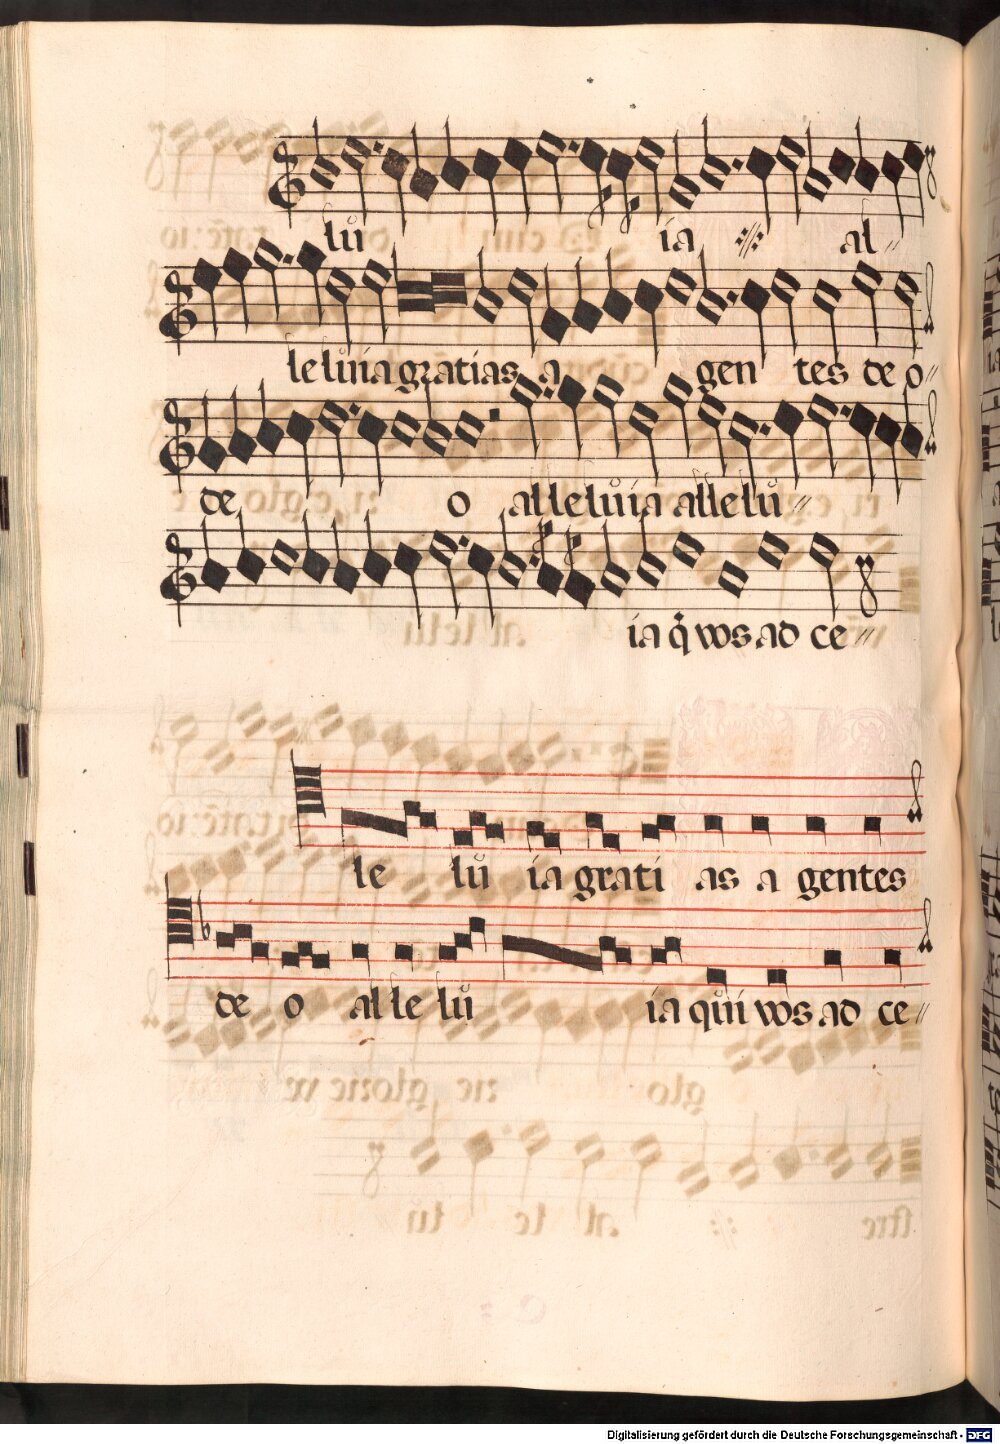 lu ia al
leluia gratias a gentes de o
de o alleluia allelu
ia q̃ vos ad ce
le lu ia grati as a gentes
de o al le lu ia qui vos ad ce
Digitalisierung gefördert durch die Deutsche Forschungsgemeinschaft - DFG